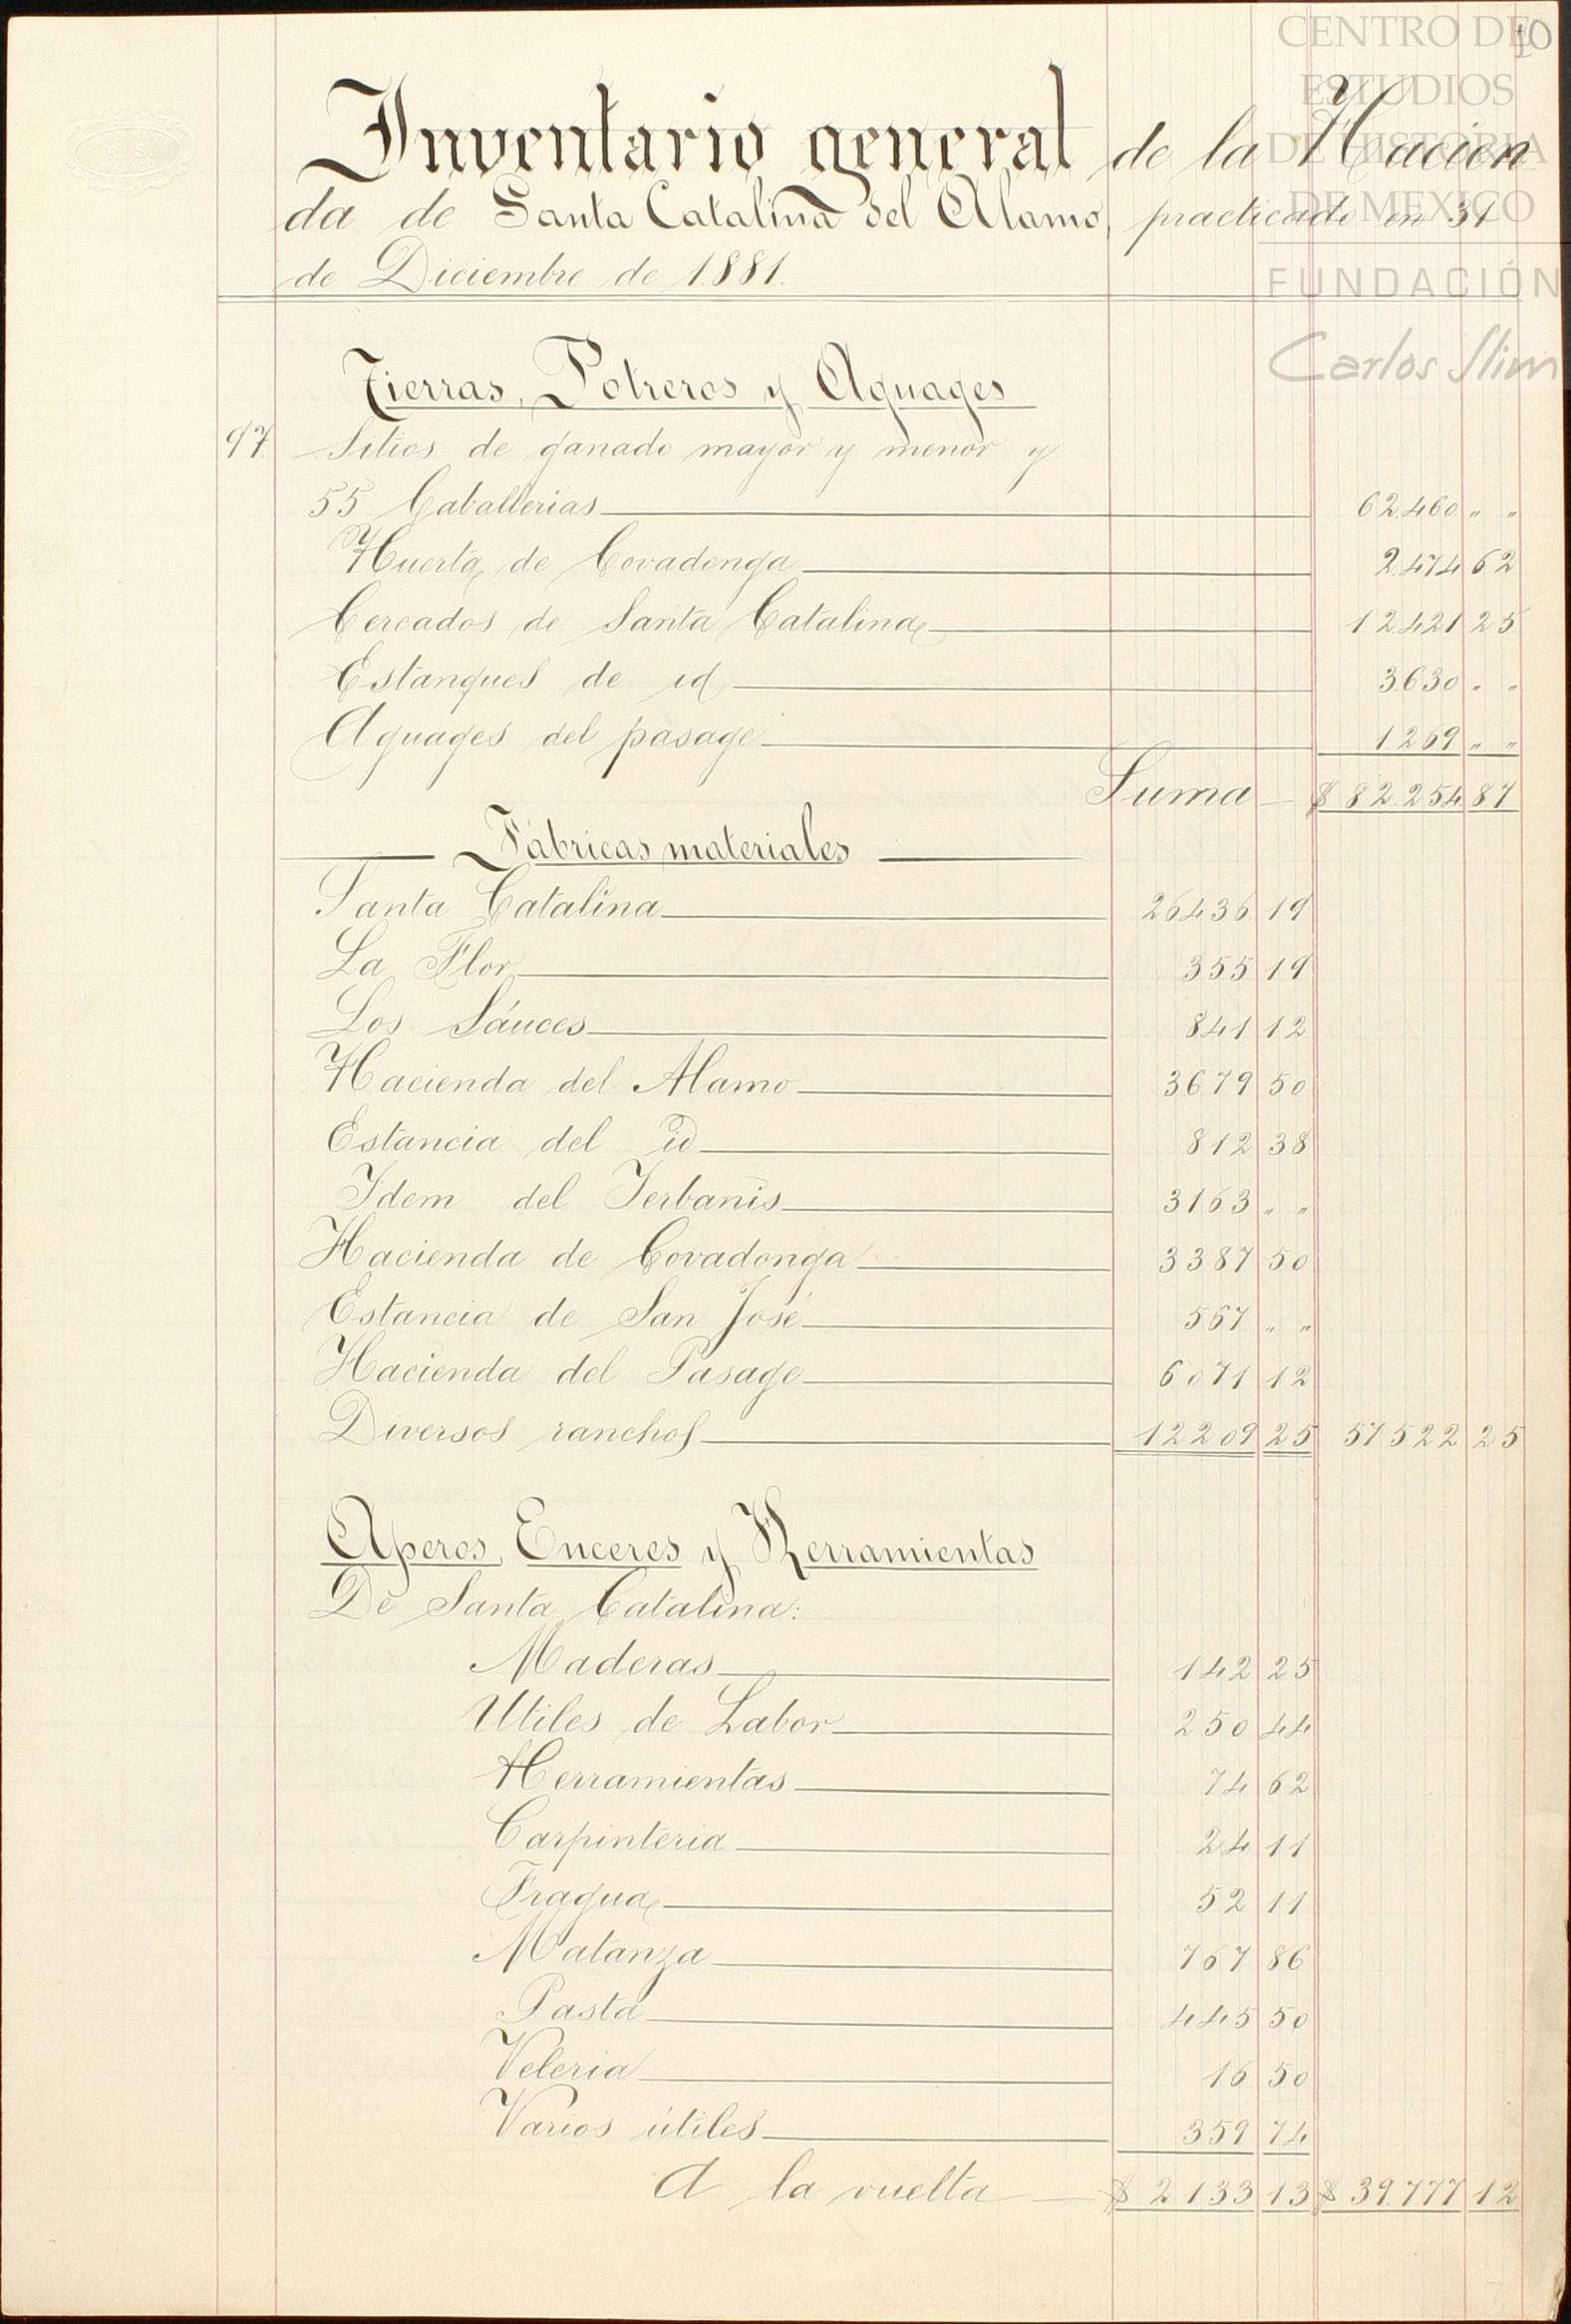 CENTRO DE
ESTUDIOS
DE HISTORIA
DE MEXICO
FUNDACIÓN
Carlos Slim
Inventario general de la Hacien
da de Santa Catalina del Alamo, practicado en 31
de Diciembre de 1881.
Tierras, Potreros y Aguages
97 Sitios de ganado mayor y menor y
55 Caballerias 62.460 " "
Huerta de Covadonga 2.474 62
Cercados de Santa Catalina 12.421 25
Estanques de id 3.630 " "
Aguages del pasage 1.269 " "
Suma $ 82.254 87
Fábricas materiales
Santa Catalina 26436 19
La Flor 355 19
Los Sáuces 841 12
Hacienda del Alamo 3679 50
Estancia del id 812 38
Idem del Yerbanis 3163 " "
Hacienda de Covadonga 3387 50
Estancia de San José 567 " "
Hacienda del Pasage 6071 12
Diversos ranchos 12209 25 57522 25
Aperos, Enceres y Herramientas
De Santa Catalina:
Maderas 142 25
Utiles de Labor 250 44
Herramientas 74 62
Carpinteria 24 11
Fragua 52 11
Matanza 767 86
Pasta 445 50
Veleria 16 50
Varios útiles 359 74
A la vuelta $ 2133 13 $ 39.777 12